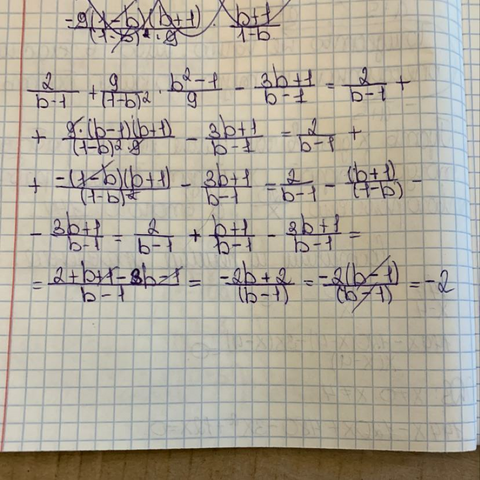 = 9(1-b)(b+1) / (1-b)² · 9 · b+1 / 1-b
2/(b-1) + 9/(1-b)² · (b²-1)/9 - (3b+1)/(b-1) = 2/(b-1) +
+ 9·(b-1)(b+1) / (1-b)² · 9 - (3b+1)/(b-1) = 2/(b-1) +
+ -(1-b)(b+1) / (1-b)² - (3b+1)/(b-1) = 2/(b-1) - (b+1)/(1-b) -
- (3b+1)/(b-1) = 2/(b-1) + (b+1)/(b-1) - (3b+1)/(b-1) =
= (2+b+1-3b-1)/(b-1) = (-2b+2)/(b-1) = -2(b-1)/(b-1) = -2